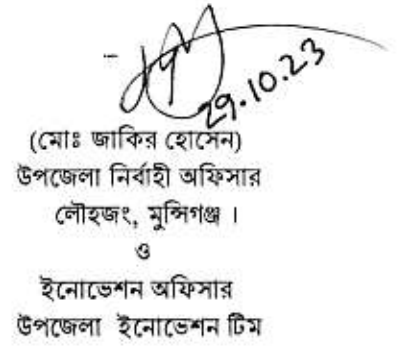 29.10.23
(মোঃ জাকির হোসেন)
উপজেলা নির্বাহী অফিসার
লৌহজং, মুন্সিগঞ্জ ।
ও
ইনোভেশন অফিসার
উপজেলা ইনোভেশন টিম